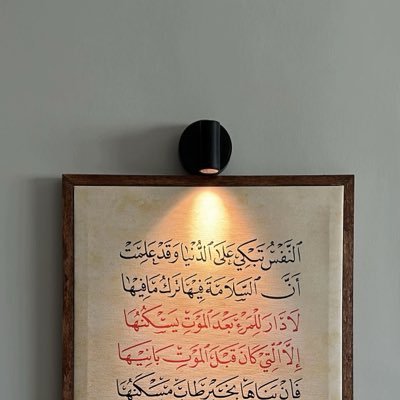 النَّفْسُ تَبْكِي عَلَى الدُّنْيَا وَقَدْ عَلِمَتْ
أَنَّ السَّلَامَةَ فِيهَا تَرْكُ مَا فِيهَا
لَا دَارَ لِلْمَرْءِ بَعْدَ الْمَوْتِ يَسْكُنُهَا
إِلَّا الَّتِي كَانَ قَبْلَ الْمَوْتِ بَانِيهَا
فَإِنْ بَنَاهَا بِخَيْرٍ طَابَ مَسْكَنُهَا